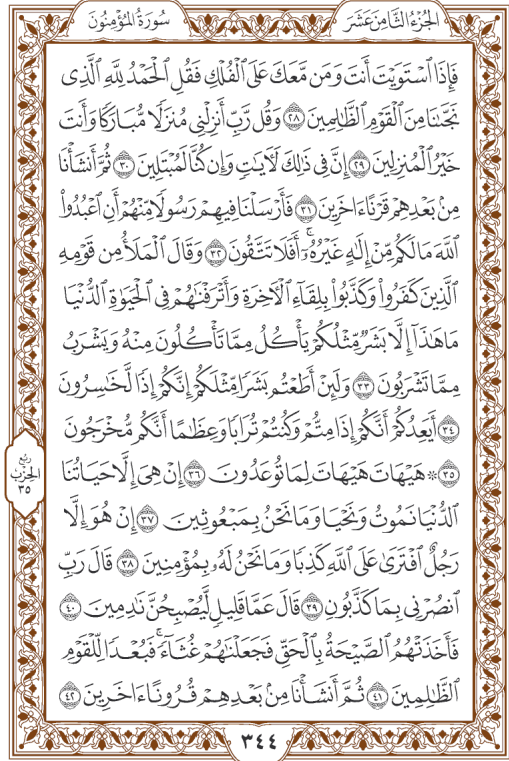 الجُزْءُ الثَّامِنَ عَشَرَ
سُورَةُ المُؤْمِنُونَ
فَإِذَا ٱسْتَوَيْتَ أَنتَ وَمَن مَّعَكَ عَلَى ٱلْفُلْكِ فَقُلِ ٱلْحَمْدُ لِلَّهِ ٱلَّذِى
نَجَّىٰنَا مِنَ ٱلْقَوْمِ ٱلظَّٰلِمِينَ ٢٨ وَقُل رَّبِّ أَنزِلْنِى مُنزَلًا مُّبَارَكًا وَأَنتَ
خَيْرُ ٱلْمُنزِلِينَ ٢٩ إِنَّ فِى ذَٰلِكَ لَءَايَٰتٍ وَإِن كُنَّا لَمُبْتَلِينَ ٣٠ ثُمَّ أَنشَأْنَا
مِنۢ بَعْدِهِمْ قَرْنًا ءَاخَرِينَ ٣١ فَأَرْسَلْنَا فِيهِمْ رَسُولًا مِّنْهُمْ أَنِ ٱعْبُدُوا۟
ٱللَّهَ مَا لَكُم مِّنْ إِلَٰهٍ غَيْرُهُۥٓ ۖ أَفَلَا تَتَّقُونَ ٣٢ وَقَالَ ٱلْمَلَأُ مِن قَوْمِهِ
ٱلَّذِينَ كَفَرُوا۟ وَكَذَّبُوا۟ بِلِقَآءِ ٱلْءَاخِرَةِ وَأَتْرَفْنَٰهُمْ فِى ٱلْحَيَوٰةِ ٱلدُّنْيَا
مَا هَٰذَآ إِلَّا بَشَرٌ مِّثْلُكُمْ يَأْكُلُ مِمَّا تَأْكُلُونَ مِنْهُ وَيَشْرَبُ
مِمَّا تَشْرَبُونَ ٣٣ وَلَئِنْ أَطَعْتُم بَشَرًا مِّثْلَكُمْ إِنَّكُمْ إِذًا لَّخَٰسِرُونَ
٣٤ أَيَعِدُكُمْ أَنَّكُمْ إِذَا مِتُّمْ وَكُنتُمْ تُرَابًا وَعِظَٰمًا أَنَّكُم مُّخْرَجُونَ
٣٥ ۞ هَيْهَاتَ هَيْهَاتَ لِمَا تُوعَدُونَ ٣٦ إِنْ هِىَ إِلَّا حَيَاتُنَا
ٱلدُّنْيَا نَمُوتُ وَنَحْيَا وَمَا نَحْنُ بِمَبْعُوثِينَ ٣٧ إِنْ هُوَ إِلَّا
رَجُلٌ ٱفْتَرَىٰ عَلَى ٱللَّهِ كَذِبًا وَمَا نَحْنُ لَهُۥ بِمُؤْمِنِينَ ٣٨ قَالَ رَبِّ
ٱنصُرْنِى بِمَا كَذَّبُونِ ٣٩ قَالَ عَمَّا قَلِيلٍ لَّيُصْبِحُنَّ نَٰدِمِينَ ٤٠
فَأَخَذَتْهُمُ ٱلصَّيْحَةُ بِٱلْحَقِّ فَجَعَلْنَٰهُمْ غُثَآءً ۚ فَبُعْدًا لِّلْقَوْمِ
ٱلظَّٰلِمِينَ ٤١ ثُمَّ أَنشَأْنَا مِنۢ بَعْدِهِمْ قُرُونًا ءَاخَرِينَ ٤٢
ربع
الحزب
٣٥
٣٤٤